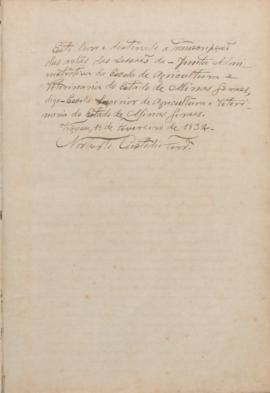 Este livro é destinado a transcripção
das actas das sessões da - Junta Admi-
nistrativa da Escola de Agricultura e
Veterinaria do Estado de Minas Geraes,
digo - Escola Superior de Agricultura e Veteri-
naria do Estado de Minas Geraes.
Viçosa, 15 de Fevereiro de 1932.
Custodio